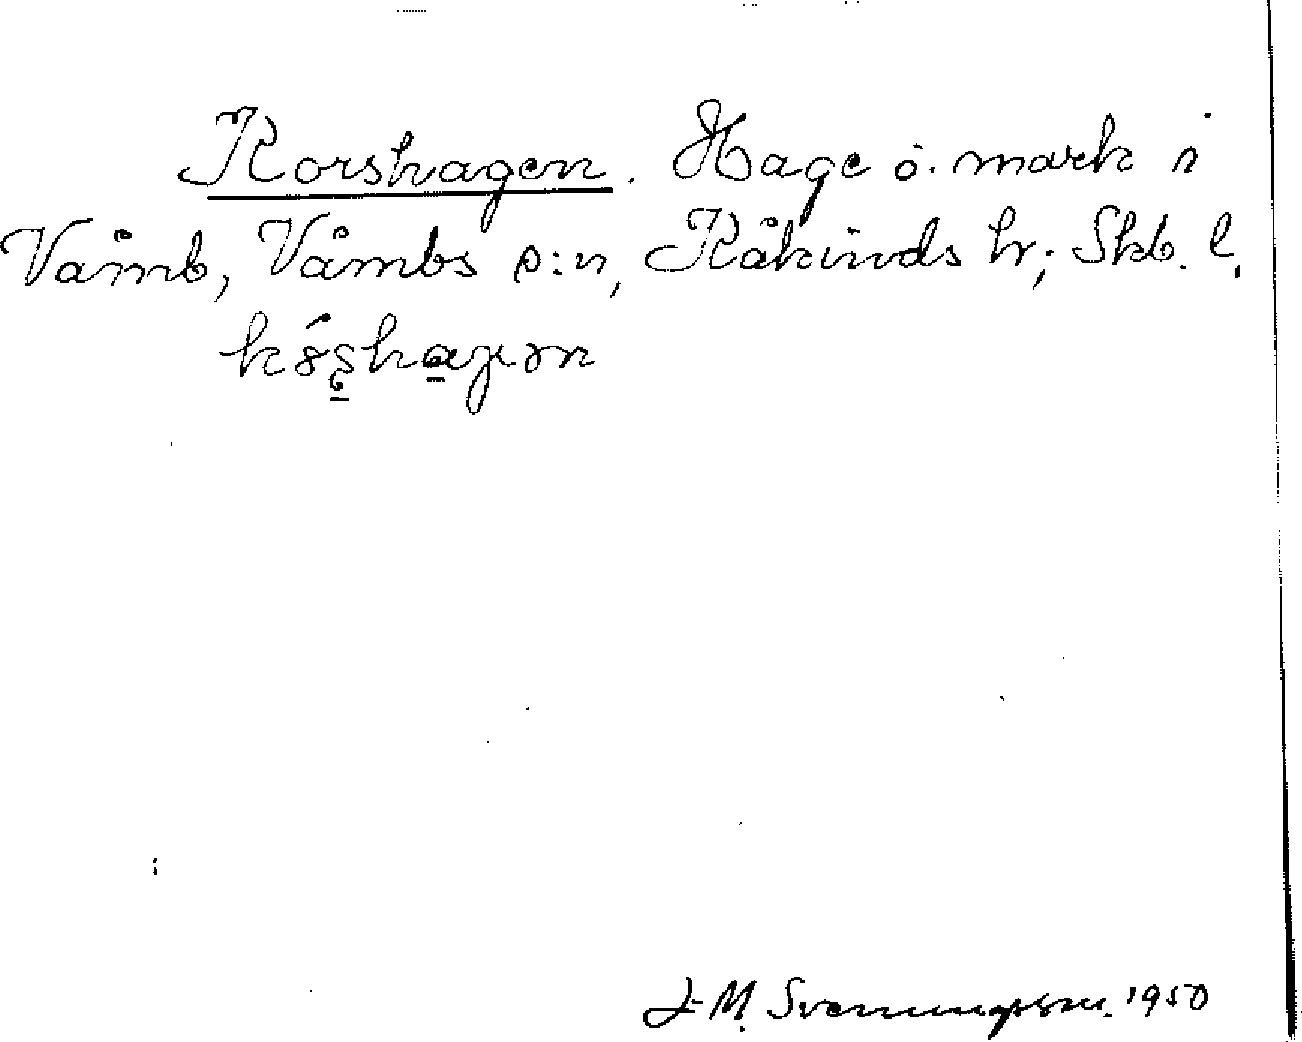 Korshagen. Hage ö. mark i
Våmb, Våmbs s:n, Kåkinds hr; Skb. l.
J-M. Svenungsson. 1950